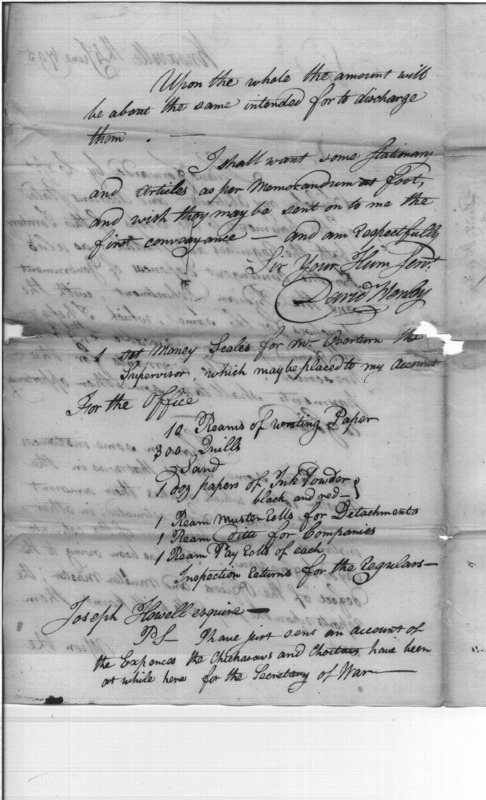 Upon the whole the amount will
be about the same intended for to discharge
them. —
I shall want some Stationary
and articles as per Memorandum at foot,
and wish they may be sent on to me the
first conveyance — and am Respectfully
Sir Your Hum Servt.
David Henley
1 set Money Scales for Mr. Overton the
Supervisor, which may be placed to my Account
For the Office
10 Reams of writing Paper
300 Quills
Sand
1 doz papers of Ink Powder
black and red—
1 Ream Muster Rolls for Detachments
1 Ream Ditto for Companies
1 Ream Pay Rolls of each
Inspection Returns for the Regulars—
Joseph Howell esquire—
PS I have just sent an account of
the Expences the Chickasaws and Choctaws have been
at while here for the Secretary of War—